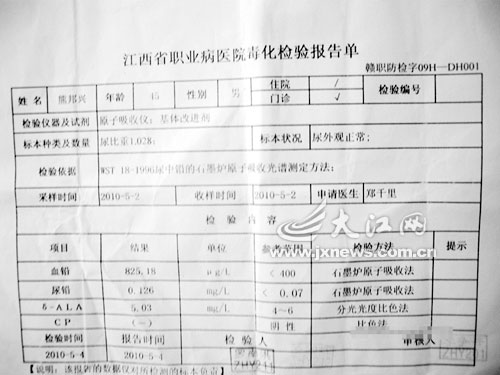 江西省职业病医院毒化检验报告单
赣职防检字09H—DH001
姓名 熊邦兴 年龄 45 性别 男 住院 / 检验编号
门诊 √
检验仪器及试剂 原子吸收仪；基体改进剂
标本种类及数量 尿比重1.028； 标本状况 尿外观正常；
检验依据 WST 18-1996尿中铅的石墨炉原子吸收光谱测定方法；
采样时间 2010-5-2 收样时间 2010-5-2 申请医生 郑千里
检验内容
大江网
www.jxnews.com.cn
项目 结果 单位 参考范围 检验方法 提示
血铅 825.18 μg/L < 400 石墨炉原子吸收法
尿铅 0.126 mg/L < 0.07 石墨炉原子吸收法
δ-ALA 5.03 mg/L 4~6 分光光度比色法
CP (—) 阴性 比色法
检验时间 报告时间 检验人 审核人
2010-5-4 2010-5-4
【说明：该报告的数据仅对所检测的标本负责】